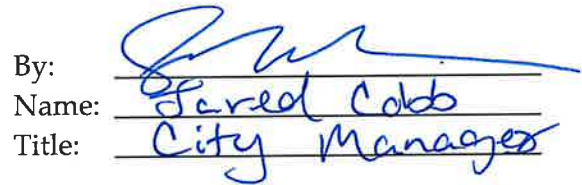 By:
Name: Jared Cobb
Title: City Manager